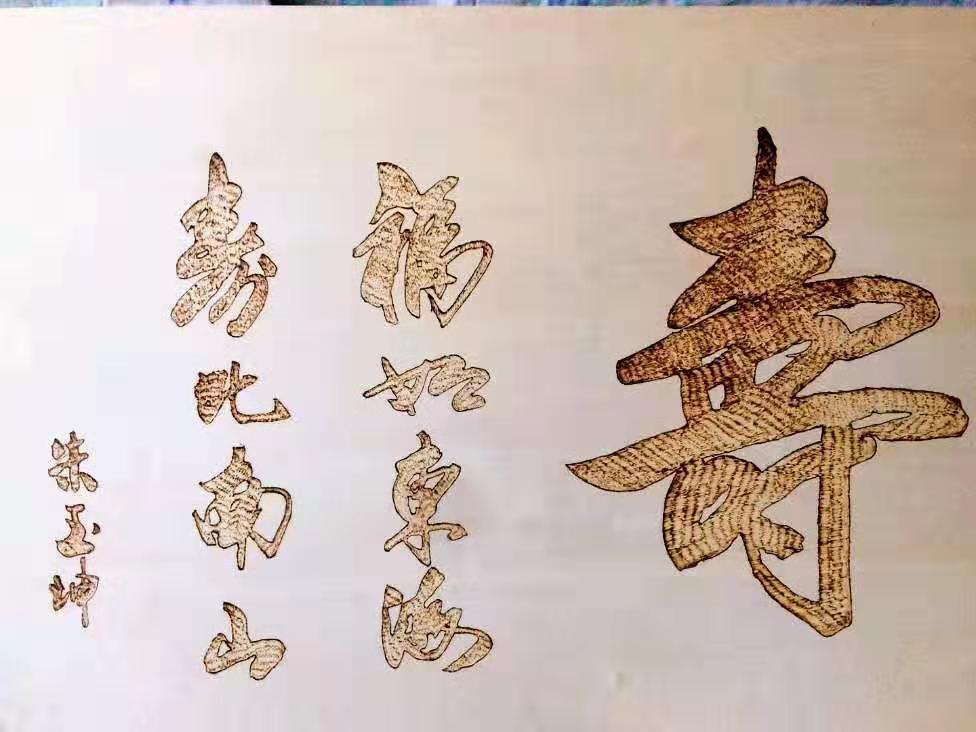 壽
福如东海
寿比南山
朱玉坤